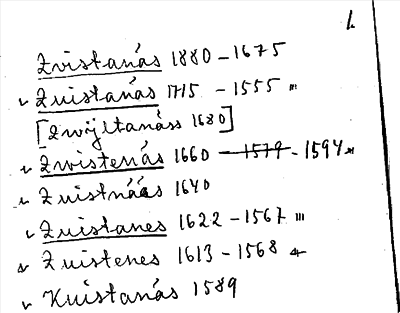 1.
Zvistanás 1880 - 1675
Zuistanás 1715 - 1555 "'
[Zwÿltanáss 1680]
Zwistenás 1660 - 1579 - 1594
Zuistnáas 1640
Zuistanes 1622 - 1567 "'
Zuistenes 1613 - 1568
Kuistanás 1589